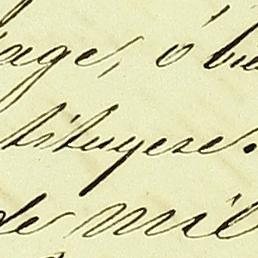 age, ó bie
tituyese.
de mil